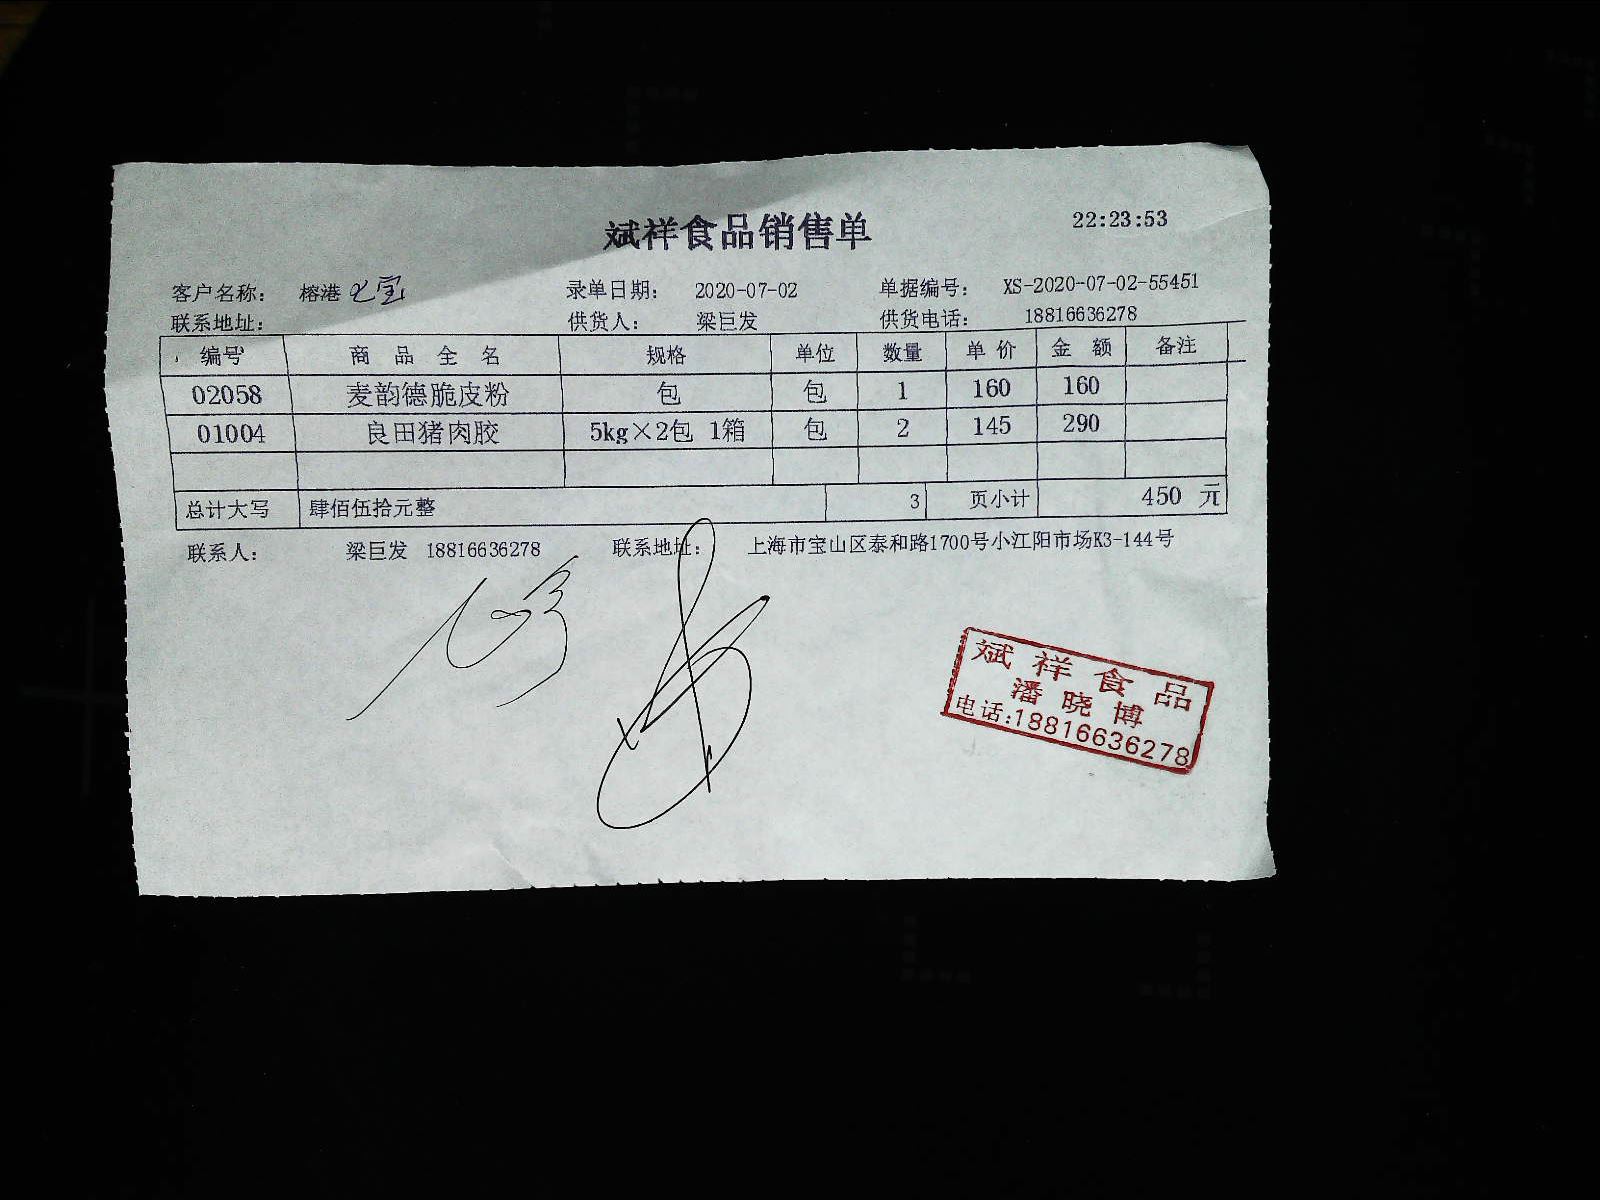 斌祥食品销售单 22:23:53
客户名称: 榕港七宝 录单日期: 2020-07-02 单据编号: XS-2020-07-02-55451
联系地址: 供货人: 梁巨发 供货电话: 18816636278
编号 商品全名 规格 单位 数量 单价 金额 备注
02058 麦韵德脆皮粉 包 包 1 160 160
01004 良田猪肉胶 5kg×2包 1箱 包 2 145 290
总计大写 肆佰伍拾元整 3 页小计 450 元
联系人: 梁巨发 18816636278 联系地址: 上海市宝山区泰和路1700号小江阳市场K3-144号
斌祥食品
潘晓博
电话:18816636278